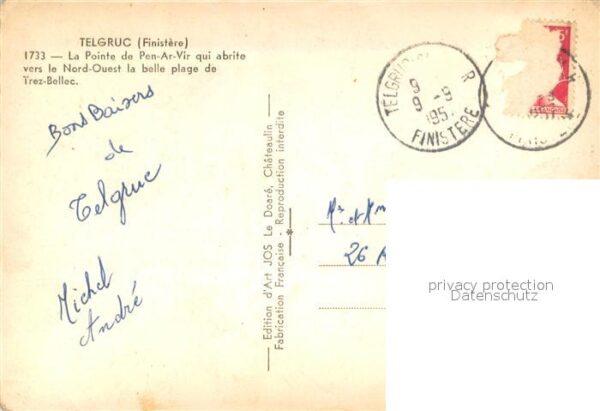 TELGRUC (Finistère)
1733 — La Pointe de Pen-Ar-Vir qui abrite
vers le Nord-Ouest la belle plage de
Trez-Bellec.
Bons Baisers
de
Telgruc
Michel
André
Edition d'Art JOS Le Doaré, Châteaulin
Fabrication Française - Reproduction interdite
TELGRUC
9
9 -9
195
FINISTERE
Mr et Mme
26
privacy protection
Datenschutz